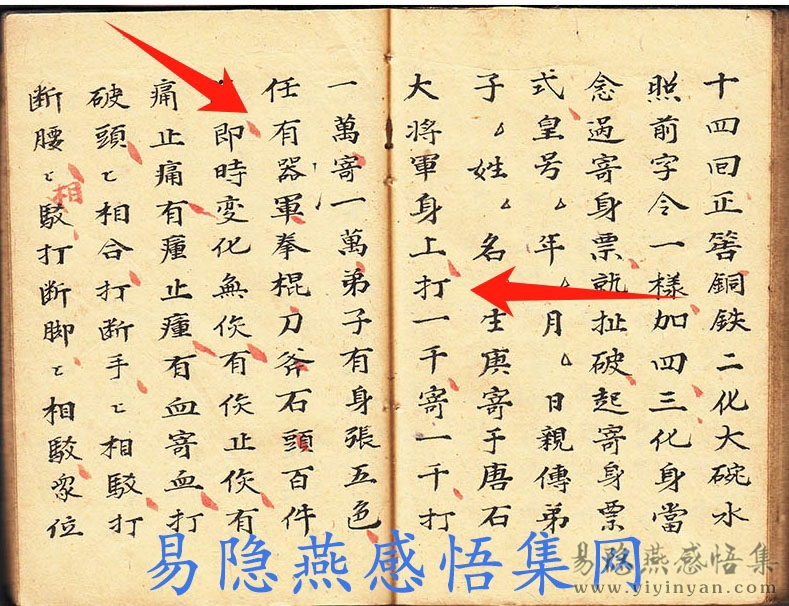 十四回正筶銅鉄二化大碗水
照前字令一樣加四三化身當
念過寄身票就扯破起寄身票
式皇号厶年厶月厶日親傳弟
子厶姓厶名生庚寄于唐石
大將軍身上打一千寄一千打
一萬寄一萬弟子有身張五色
任有器軍拳棍刀斧石頭百件
即時變化無有止有
痛止痛有瘇止瘇有血寄血打
破頭〻相合打断手〻相駁打
断腰〻相駁打断脚〻相駁衆位
易隐燕感悟集网
易隐燕感悟集
www.yiyinyan.com